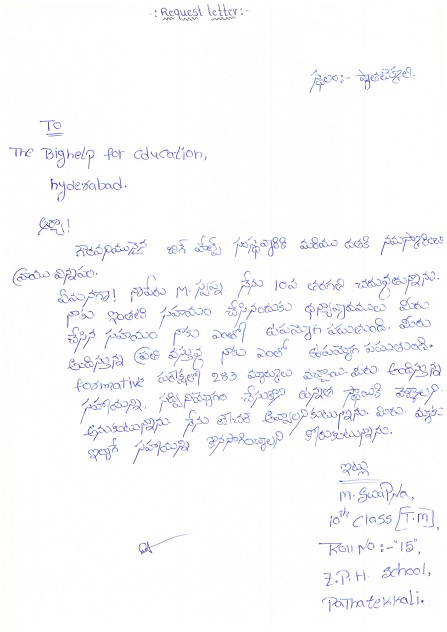 -: Request letter:-
స్థలం:- పాతటెక్కలి.
To
The Bighelp for Education,
hyderabad.
ఆర్యా!
గౌరవనీయులైన బిగ్ హెల్ప్ సంస్థవ్యారికి మరియు దాతకి నమస్కారించి
వ్రాయు విన్నపం.
ఏమనగా! నాపేరు M. స్వప్న నేను 10వ తరగతి చదువుతున్నాను.
నాకు ఇంతటి సహయం చేసినందుకు ధన్యావ్యాదములు మీరు
చేసిన సహయం నాకు ఎంతో ఉపయోగ పడుతుంది. మీరు
అందిస్తున్న ప్రతి వస్తువు నాకు ఎంతో ఉపయోగ పడుతుంది.
formative పరీక్షలో 283 మార్కులు వచ్చాయి. మీరు అందిస్తున్న
సహాయాన్ని, సద్వినియోగం చేసుకొని ఉన్నత స్థాయికి వెళ్ళాలని
అనుకుటున్నాను. నేను టీచర్ అవ్వాలనికుటున్నాను. మీరు, మాకు
ఇల్లాగే సహాయాన్ని కొనసాగించాలని కోరుకుటున్నాను.
ఇట్లు
M. SwapNa,
10th Class [T.M],
Roll No:- "15",
Z.P.H. School,
Pathatekkali.